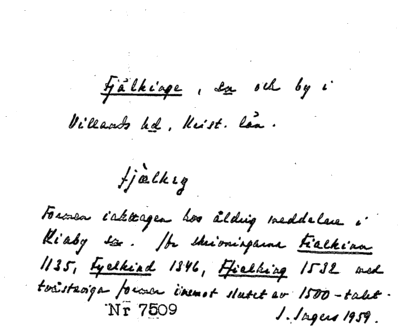 Fjälkinge, sn och by i
Villands hd, Krist. län.
fjælkeg
Formen iakttagen hos äldrig meddelare i
Kiaby sn. Jfr skrivningarna Fialkinn
1135, Fyelkind 1346, Ffielking 1532 med
tvåstaviga former inemot slutet av 1500-talet.
Nr 7509
I. Ingers 1959.